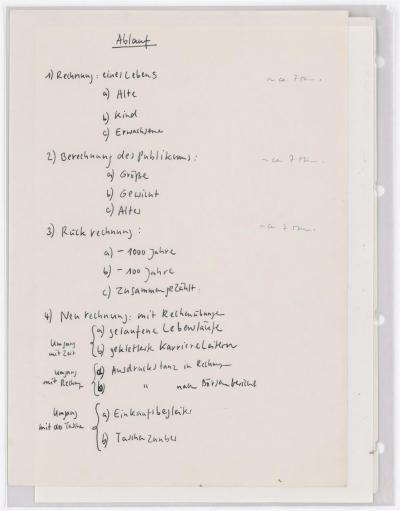 Ablauf
1) Rechnung: eines Lebens ~ ca 7 Min.
a) Alte
b) Kind
c) Erwachsene
2) Berechnung des Publikums: ~ ca 7 Min.
a) Größe
b) Gewicht
c) Alter
3) Rückrechnung: ~ ca 7 Min.
a) - 1000 Jahre
b) - 100 Jahre
c) Zusammengezählt:
4) Neurechnung: mit Rechenübungen
Umgang mit Zeit
a) gelaufene Lebensläufe
b) gekletterte Karriereleitern
Umgang mit Rechnung
a) Ausdruckstanz in Rechnung
b) " nach Börsenbericht
Umgang mit der Tasche
a) Einkaufsbegleiter
b) Taschenzauber